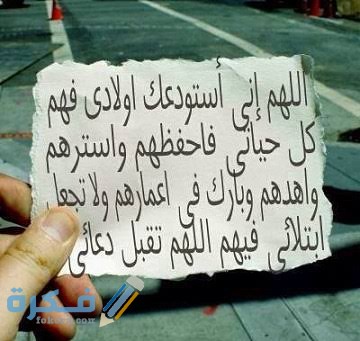 اللهم إني أستودعك اولادى فهم
كل حياتى فاحفظهم واسترهم
واهدهم وبارك فى اعمارهم ولا تجعل
ابتلائى فيهم اللهم تقبل دعائى
فكرة